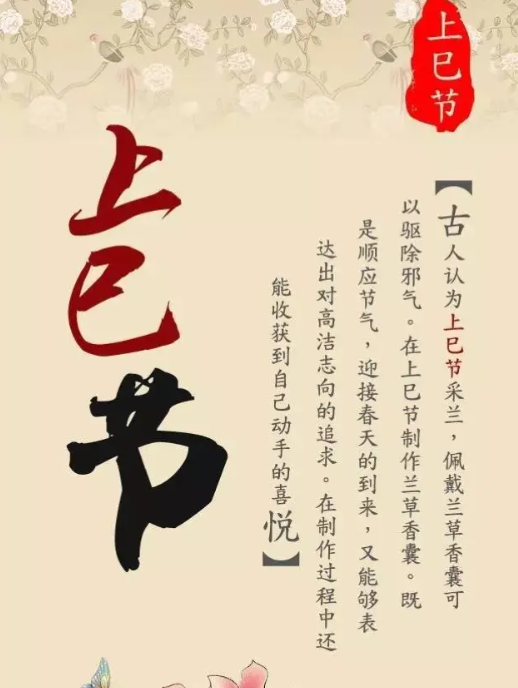 上巳节
上巳节
【古人认为上巳节采兰，佩戴兰草香囊可
以驱除邪气。在上巳节制作兰草香囊。既
是顺应节气，迎接春天的到来，又能够表
达出对高洁志向的追求。在制作过程中还
能收获到自己动手的喜悦】